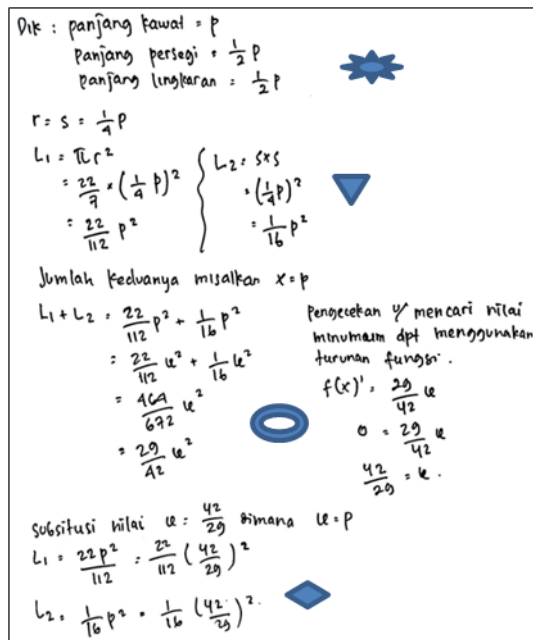 Dik : panjang kawat = p
panjang persegi = 1/2 p
panjang lingkaran = 1/2 p
r = s = 1/4 p
L₁ = πr²
= 22/7 × (1/4 p)²
= 22/112 p²
L₂ = s×s
= (1/4 p)²
= 1/16 p²
Jumlah keduanya misalkan x = p
L₁ + L₂ = 22/112 p² + 1/16 p²
= 22/112 x² + 1/16 x²
= 464/672 x²
= 29/42 x²
Pengecekan u/ mencari nilai
minumum dpt menggunakan
turunan fungsi.
f(x)' = 29/42 x
0 = 29/42 x
42/29 = x.
subsitusi nilai x = 42/29 dimana x = p
L₁ = 22p²/112 = 22/112 (42/29)²
L₂ = 1/16 p² = 1/16 (42/29)².